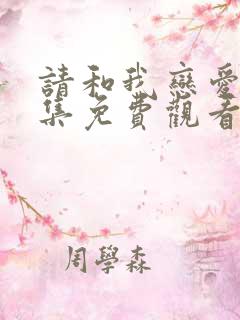 請和我戀愛
集免費觀看
周學森